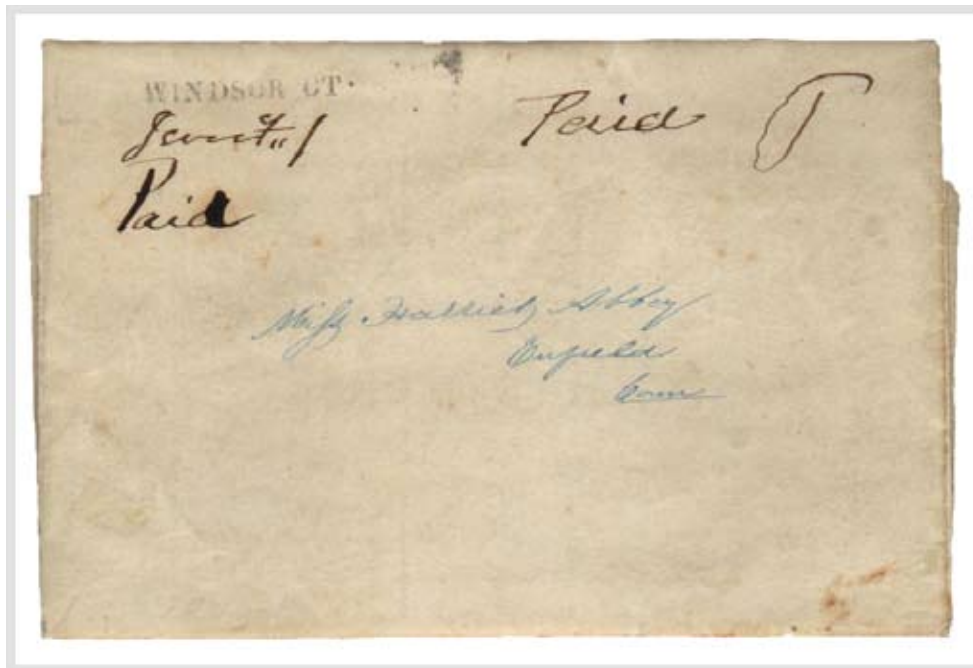 WINDSOR CT.
Paid
Paid
Miss Abbey
Enfield
Conn